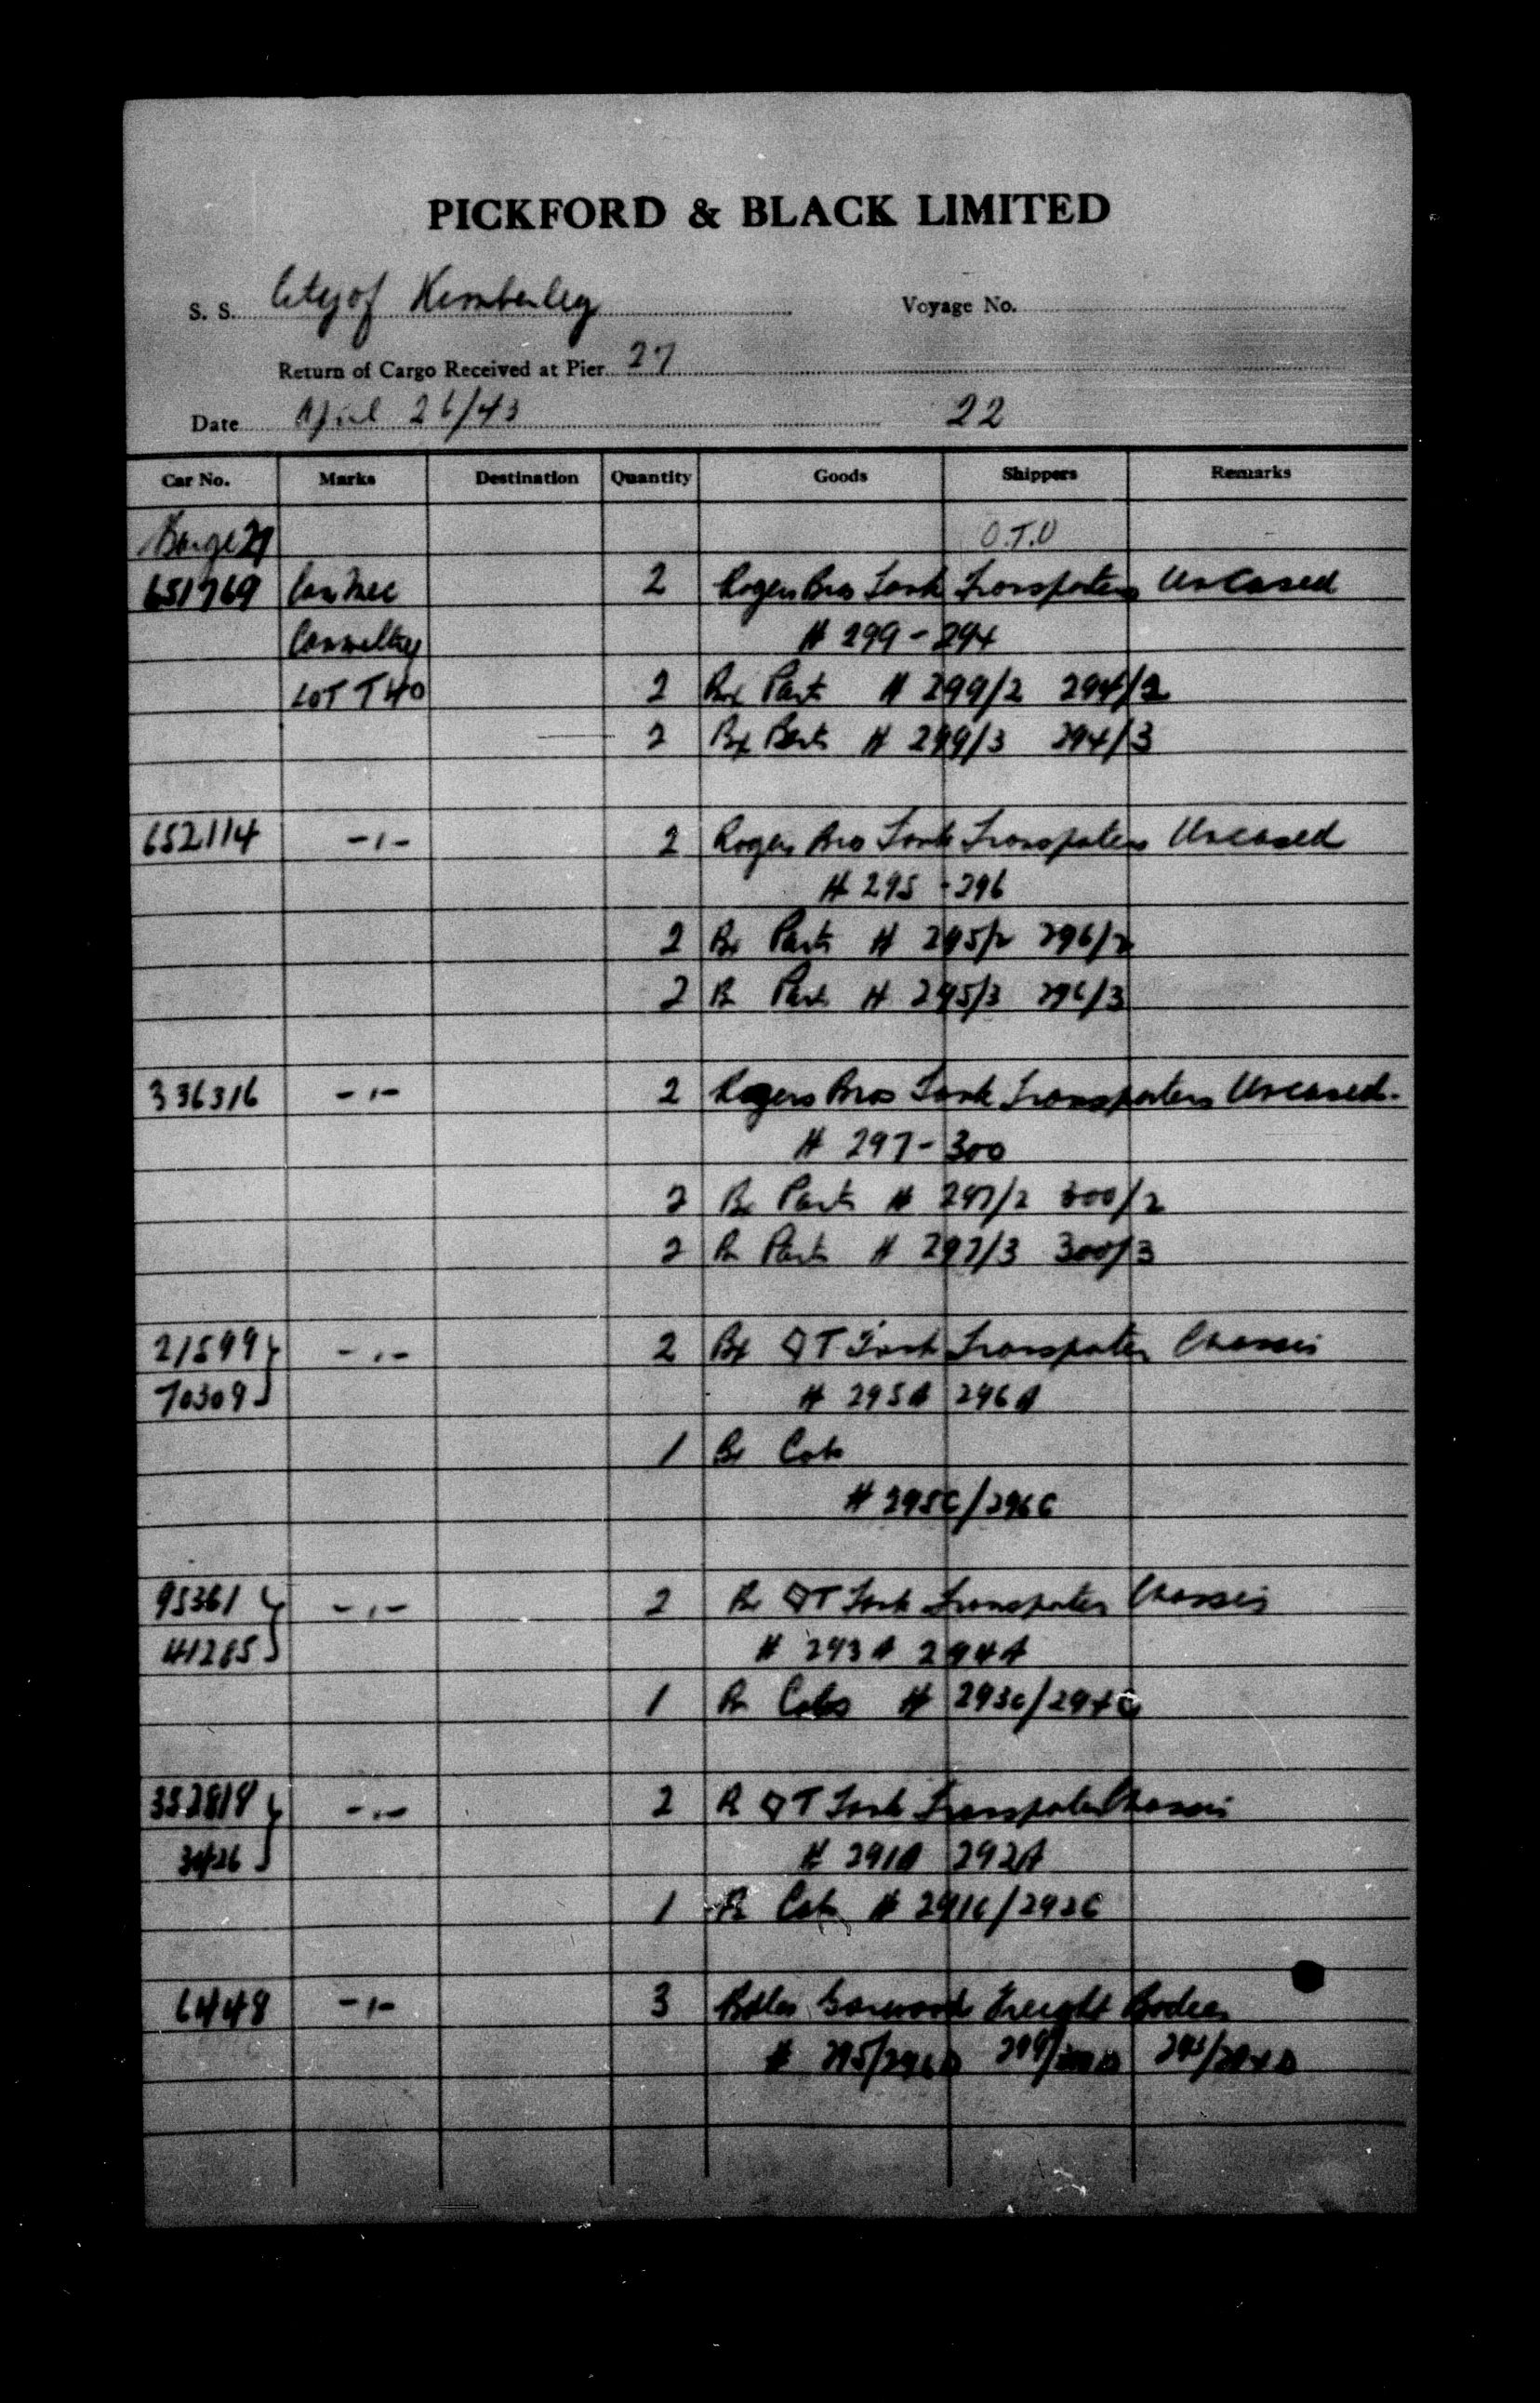 PICKFORD & BLACK LIMITED
S. S. City of Kimberley Voyage No.
Return of Cargo Received at Pier 27
Date April 26/43 22
Car No. Marks Destination Quantity Goods Shippers Remarks
Barge 21 O.T.U
651769 2 Rogers Bros Tank Transporters Uncased
# 299 - 294
LOT T40 2 Bx Parts # 299/2 294/2
2 Bx Parts # 299/3 294/3
652114 -,- 2 Rogers Bros Tank Transporters Uncased
# 295 - 296
2 Bx Parts # 295/2 296/2
2 Bx Parts # 295/3 296/3
336316 -,- 2 Rogers Bros Tank Transporters Uncased.
# 297 - 300
2 Bx Parts # 297/2 300/2
2 Bx Parts # 297/3 300/3
21599 } -,- 2 Bx ◇T Tank Transporter Chassis
70309 } # 295A 296A
1 Bx Cabs
# 295C/296C
95361 } -,- 2 Bx ◇T Tank Transporter Chassis
41285 } # 293A 294A
1 Bx Cabs # 293C/294C
352818 } -,- 2 Bx ◇T Tank Transporter Chassis
} # 291A 292A
1 Bx Cabs # 291C/292C
61448 -,- 3 Bdles Garwood Freight Bodies
# 295/296D 293/294D